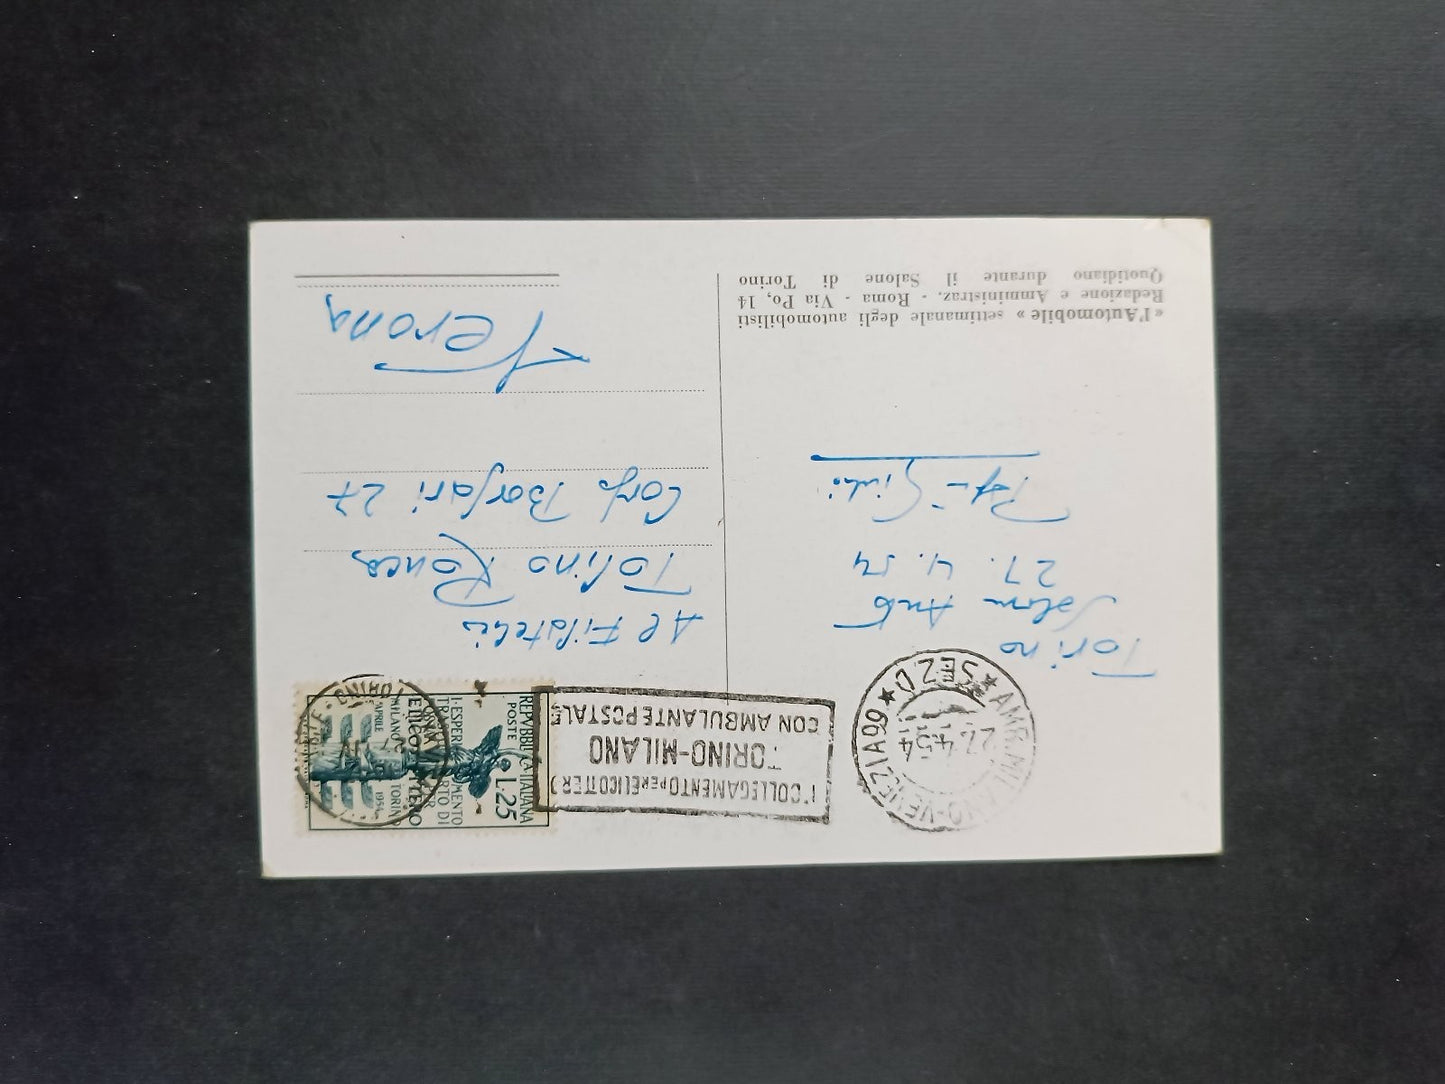 « l'Automobile » settimanale degli automobilisti
Redazione e Amministraz. - Roma - Via Po, 14
Quotidiano durante il Salone di Torino
Torino
27. 4. 54
Al Filatelis
Tosino Ronca
Borsari 27
Verona
REPVBBLICA ITALIANA
POSTE L.25
I° ESPERIMENTO
TRASPORTO DI
MILANO TORINO
APRILE 1954
1° COLLEGAMENTO PER ELICOTTERO
TORINO-MILANO
CON AMBULANTE POSTALE
AMB. MILANO-VENEZIA 99
★ SEZ D ★
27.4.54